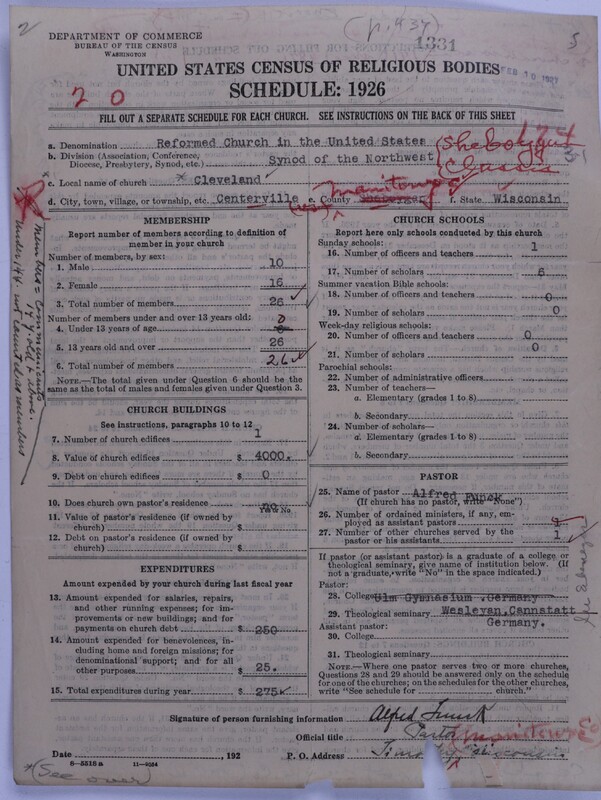 2
(p. 437)
5
DEPARTMENT OF COMMERCE
BUREAU OF THE CENSUS
WASHINGTON
1331
FEB 10 1927
UNITED STATES CENSUS OF RELIGIOUS BODIES
SCHEDULE: 1926
2 0
FILL OUT A SEPARATE SCHEDULE FOR EACH CHURCH. SEE INSTRUCTIONS ON THE BACK OF THIS SHEET
a. Denomination Reformed Church in the United States
b. Division (Association, Conference, Diocese, Presbytery, Synod, etc.) Synod of the Northwest
Sheboygan
Classis
c. Local name of church * Cleveland
Manitowoc
d. City, town, village, or township, etc. Centerville e. County Sheboygan f. State Wisconsin
Members = Communicants
14 y. old & above.
under 14 y. not count'd as members
MEMBERSHIP
Report number of members according to definition of member in your church
Number of members, by sex:
1. Male 10
2. Female 16
3. Total number of members 26
Number of members under and over 13 years old:
4. Under 13 years of age 0
5. 13 years old and over 26
6. Total number of members 26
NOTE.—The total given under Question 6 should be the same as the total of males and females given under Question 3.
CHURCH BUILDINGS
See instructions, paragraphs 10 to 12
7. Number of church edifices 1
8. Value of church edifices $ 4000.
9. Debt on church edifices $ 0
10. Does church own pastor's residence no
Yes or No
11. Value of pastor's residence (if owned by church) $
12. Debt on pastor's residence (if owned by church) $
EXPENDITURES
Amount expended by your church during last fiscal year
13. Amount expended for salaries, repairs, and other running expenses; for improvements or new buildings; and for payments on church debt $ 250
14. Amount expended for benevolences, including home and foreign missions; for denominational support; and for all other purposes $ 25.
15. Total expenditures during year $ 275
CHURCH SCHOOLS
Report here only schools conducted by this church
Sunday schools:
16. Number of officers and teachers 1
17. Number of scholars 6
Summer vacation Bible schools:
18. Number of officers and teachers 0
19. Number of scholars 0
Week-day religious schools:
20. Number of officers and teachers 0
21. Number of scholars 0
Parochial schools:
22. Number of administrative officers
23. Number of teachers—
a. Elementary (grades 1 to 8)
b. Secondary
24. Number of scholars—
a. Elementary (grades 1 to 8)
b. Secondary
PASTOR
25. Name of pastor Alfred Funck
(If church has no pastor, write "None")
26. Number of ordained ministers, if any, employed as assistant pastors
27. Number of other churches served by the pastor or his assistants 1
If pastor (or assistant pastor) is a graduate of a college or theological seminary, give name of institution below. (If not a graduate, write "No" in the space indicated.)
Pastor:
28. College Ulm Gymnasium .Germany
29. Theological seminary Wesleyan, Cannstatt
Germany.
Assistant pastor:
30. College
31. Theological seminary
NOTE.—Where one pastor serves two or more churches, Questions 28 and 29 should be answered only on the schedule for one of the churches; on the schedules for the other churches, write "See schedule for church."
Signature of person furnishing information Alfred Funck
Official title Pastor
Manitowoc Co
Date , 192
P. O. Address Wisconsin
8—5518a 11—9034
*(See over)